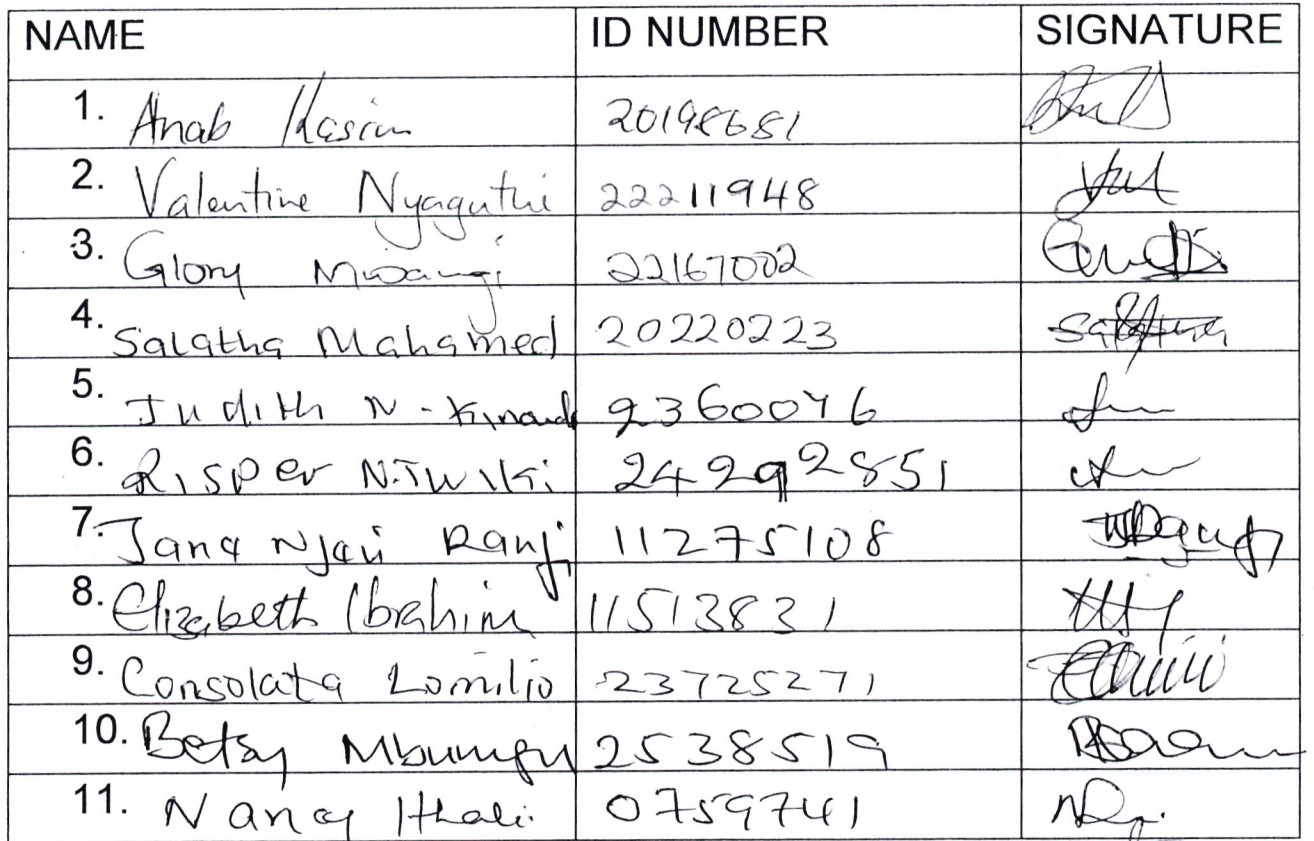 NAME ID NUMBER SIGNATURE
1. Anab Kasim 20198681
2. Valentine Nyaguthi 22211948
3. Glory Mwangi 22167002
4. Salatha Mahamed 20220223
5. Judith N - 9360046
6. Risper 24292851
7. Jana Njeri Ranji 11275108
8. Elizabeth Ibrahim 11513831
9. Consolata Lomilio 23725271
10. Betsy 2538519
11. Nancy Ithali 0759741